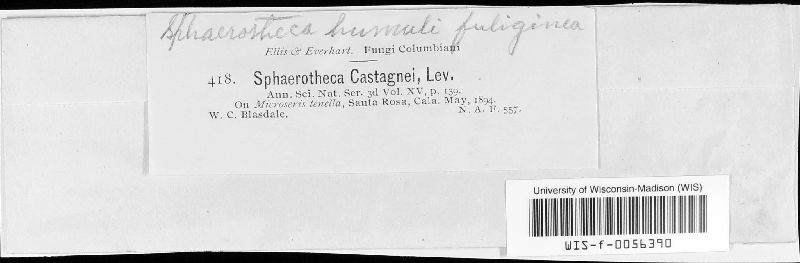 Sphaerotheca humuli fuliginea
Ellis & Everhart. Fungi Columbiani
418. Sphaerotheca Castagnei, Lev.
Ann. Sci. Nat. Ser. 3d Vol. XV, p. 139.
On Microseris tenella, Santa Rosa, Cala. May, 1894.
W. C. Blasdale. N. A. F. 557.
University of Wisconsin-Madison (WIS)
WIS-f-0056390